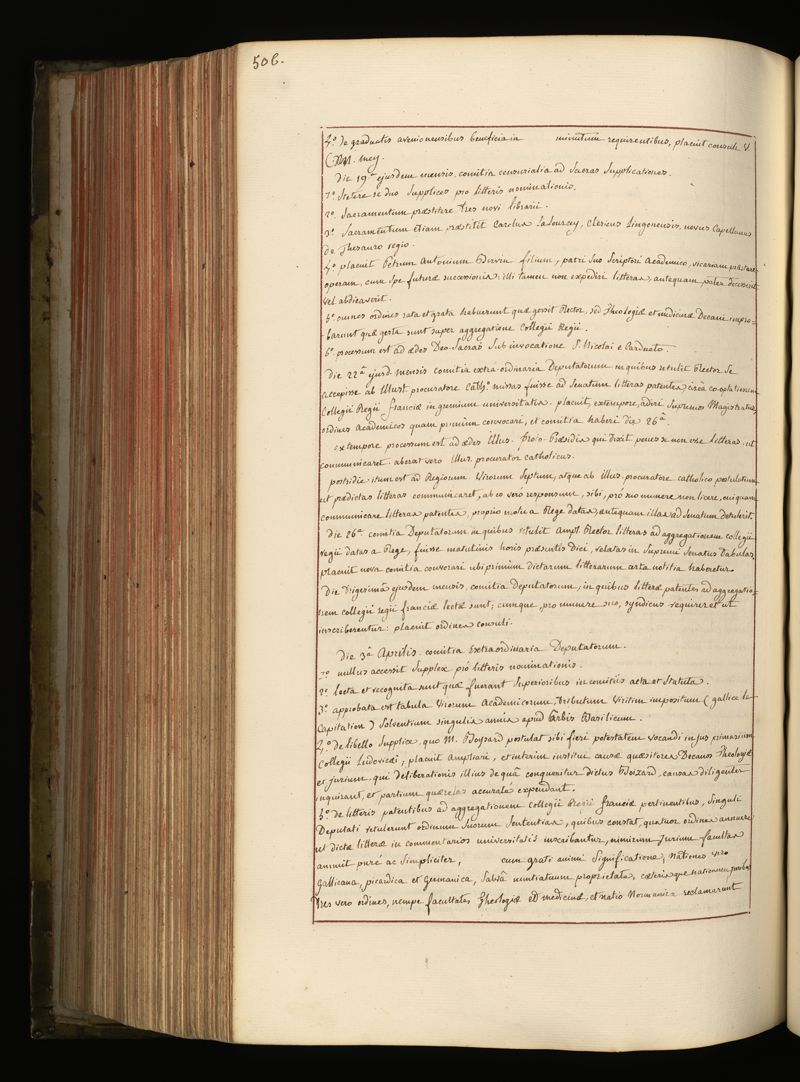 506.
4º. de graduatis avenionensibus beneficia in minutum requirentibus, placuit consuli
MM. mey.
Die 19ª ejusdem mensis, comitia censurialia ad Sacras Supplicationes.
1º. Stetere se duo Supplices pro litteris nominationis.
2º. Sacramentum præstitere tres novi librarii.
3º. Sacramentum etiam præstitit Carolus Clericus Lingonensis, novus Capellanus
de Thesauro regio.
4º. placuit Petrum Antonium filium, patri suo Scriptori Academico, vicariam præstare
operam, cum Spe futuræ successionis: illi tamen non expediri litteras, antequam pater decesserit
vel abdicaverit.
5º. omnes ordines rata et grata habuerunt quæ gessit Rector, sed Theologiæ et medicinæ Decani impro-
barunt quæ gesta sunt super aggregatione Collegii Regii.
6º. processum est ad ædes Deo Sacras Sub invocatione S. Nicolai e Cardueto.
Die 22ª ejusd. mensis comitia extra-ordinaria Deputatorum in quibus retulit Rector Se
accepisse ab Illust. procuratore Cath.º missas fuisse ad Senatum litteras patentes circà cooptationem
Collegii Regii franciæ in gremium universitatis. placuit, extempore, adiri Supremos Magistratus,
ordines Academicos quam primùm convocari, et comitia haberi die 26ª.
extempore processum est ad ædes Illus. Proto-Præsidis qui dixit penes se non esse litteras, ut
communicaret. aberat vero Illus. procurator catholicus.
postridie itum est ad Regiorum Virorum Septum, atque ab Illus. procuratore catholico postulatum
ut prædictas litteras communicaret, ab eo vero responsum, sibi, pro suo munere non licere, cuiquam
communicare litteras patentes, proprio motu a Rege datas, antequam illas ad Senatum detulerit.
Die 26ª comitia Deputatorum in quibus retulit Ampl. Rector litteras ad aggregationem collegii
regii datas a Rege, fuisse matutinis horis præsentis diei, relatas in Supremi Senatus Tabulas,
placuit nova comitia convocari ubi primùm dictarum litterarum certa notitia haberetur.
Die Trigesimâ ejusdem mensis, comitia Deputatorum, in quibus litteræ patentes ad aggregatio-
nem collegii regii franciæ lectæ sunt; cumque, pro munere suo, syndicus requireret ut
inscriberentur: placuit ordines consuli.
Die 3ª Aprilis. comitia Extraordinaria Deputatorum.
1º. nullus accessit Supplex pro litteris nominationis.
2º. lecta et recognita sunt quæ fuerant Superioribus in comitiis acta et Statuta.
3º. approbata est tabula Virorum Academicorum, tributum Viritim impositum (gallice la
Capitation) Solventium singulis annis apud Urbis Basilicum.
4º. de libello Supplice, quo M. Boyzard postulat sibi fieri potestatem vocandi in jus primarium
Collegii Ludovici; placuit ampliari, et interim institui causæ quæsitores Decanos Theologiæ
et jurium, qui deliberationis illius de quâ conqueritur dictus Boizard, causas diligenter
inquirant, et partium querelas accuratè expendant.
5º. de litteris patentibus ad aggregationem Collegii Regii franciæ pertinentibus, Singuli
Deputati retulerunt ordinum Suorum Sententias, quibus constat, quatuor ordines annuere
ut dictæ litteræ in commentarios universitatis inscribantur, nimirum Jurium facultas
annuit purè ac Simpliciter, cum grati animi Significatione, Nationes vero
Gallicana, picardica et Germanica, Salvâ nuntiatuum proprietate, cæterisque nationum juribus
Tres vero ordines, nempe facultates Theologiæ et medicinæ, et natio Normanica reclamarunt